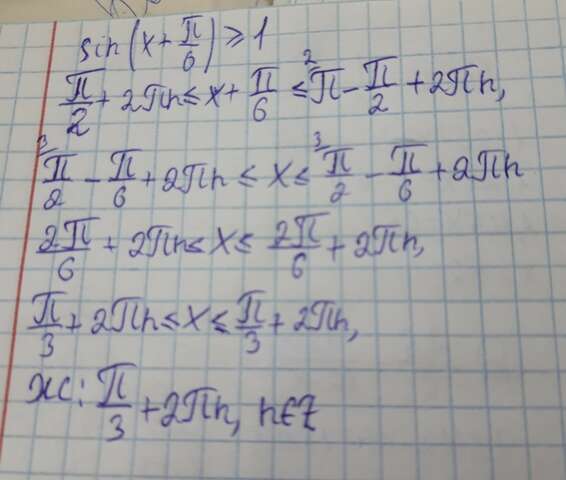 sin(x + π/6) ≥ 1
π/2 + 2πn ≤ x + π/6 ≤ ²π - π/2 + 2πn,
³π/2 - π/6 + 2πn ≤ x ≤ ³π/2 - π/6 + 2πn
2π/6 + 2πn ≤ x ≤ 2π/6 + 2πn,
π/3 + 2πn ≤ x ≤ π/3 + 2πn,
жс: π/3 + 2πn, n∈Z